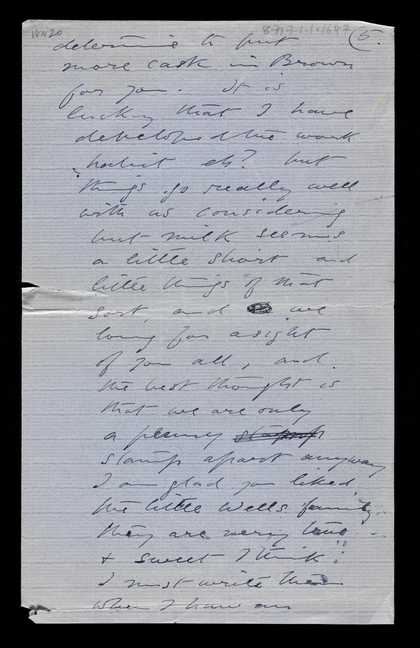 5.
determine to put
more cash in Brown
for you. It is
lucky that I have
developed the work
habit eh? but
things go really well
with us considering
but milk seems
a little short and
little things of that
sort, and we
long for a sight
of you all, and
the best thought is
that we are only
a penny stamp
stamp apart anyway
I am glad you liked
the little Wells family
they are very
& sweet I think.
I must write them
when I have an